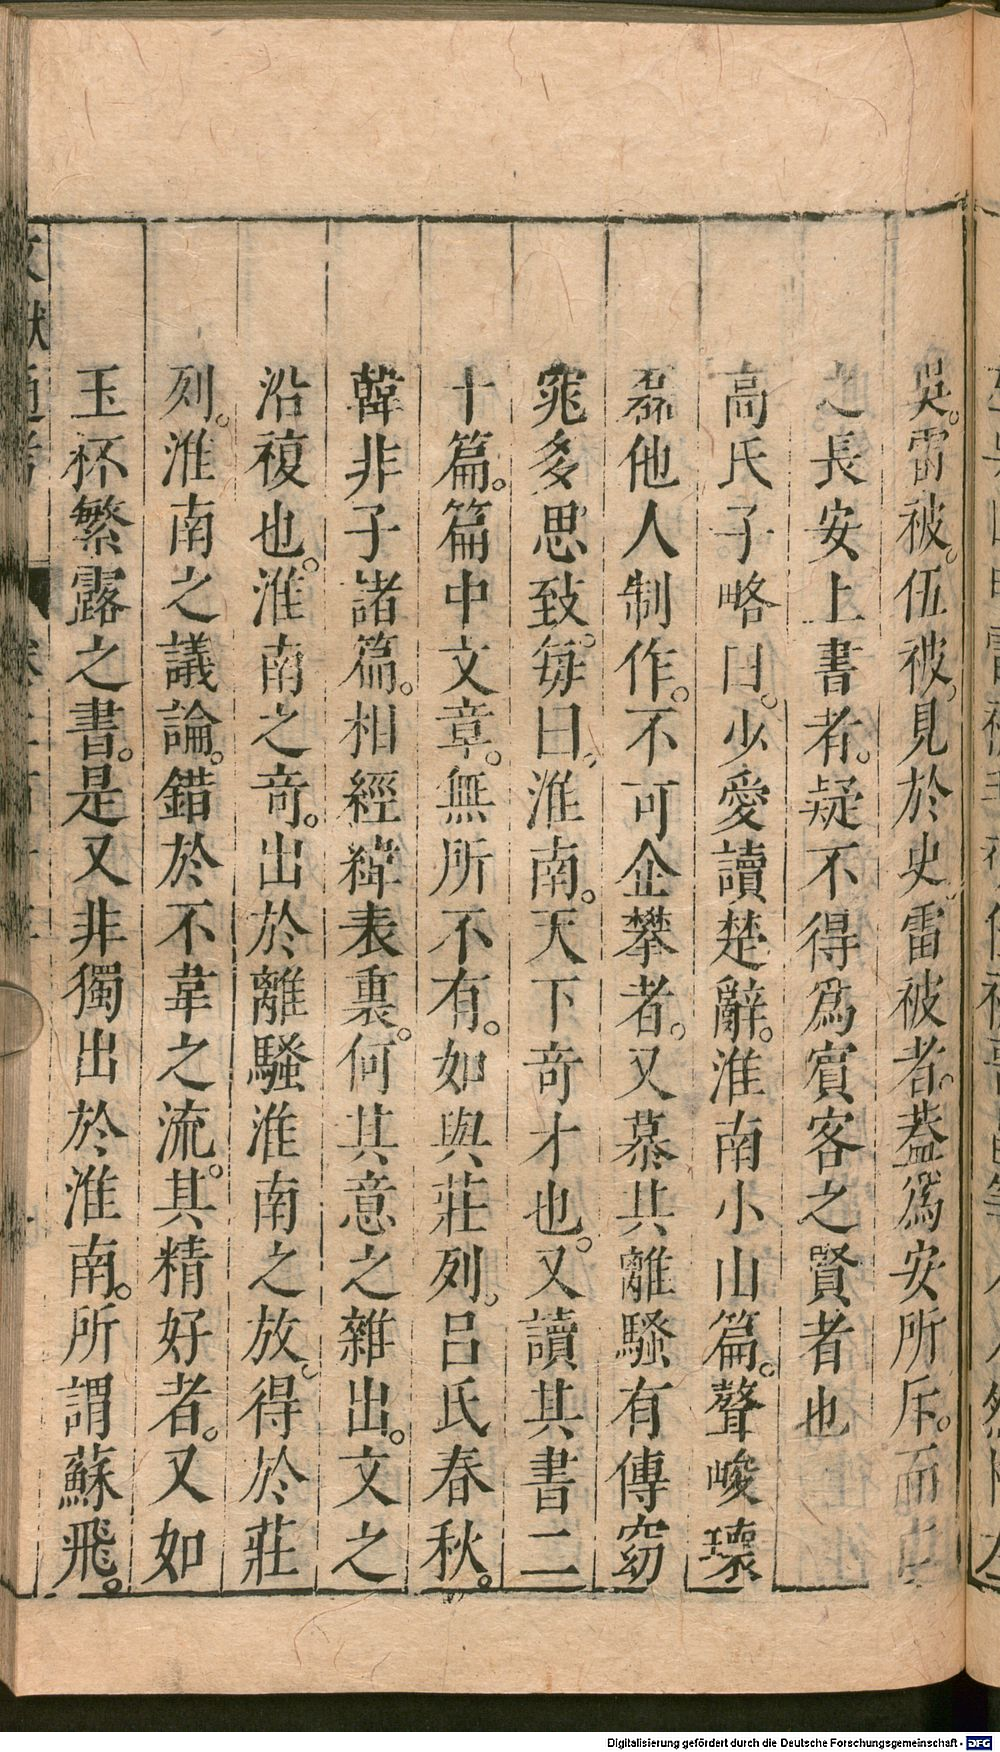 吳。雷被。伍被。見於史。雷被者。蓋爲安所斥。而
之長安上書者。疑不得爲賓客之賢者也
高氏子略曰。少愛讀楚辭。淮南小山篇。聱峻瓌
磊他人制作。不可企攀者。又慕其離騷有傳窈
窕多思致。每曰。淮南。天下奇才也。又讀其書二
十篇。篇中文章。無所不有。如與莊列。呂氏春秋。
韓非子諸篇。相經緯表裏。何其意之雜出。文之
沿複也。淮南之奇。出於離騷淮南之放。得於莊
列。淮南之議論。錯於不韋之流。其精好者。又如
玉杯繁露之書。是又非獨出於淮南。所謂蘇飛。
文獻通考
Digitalisierung gefördert durch die Deutsche Forschungsgemeinschaft - DFG